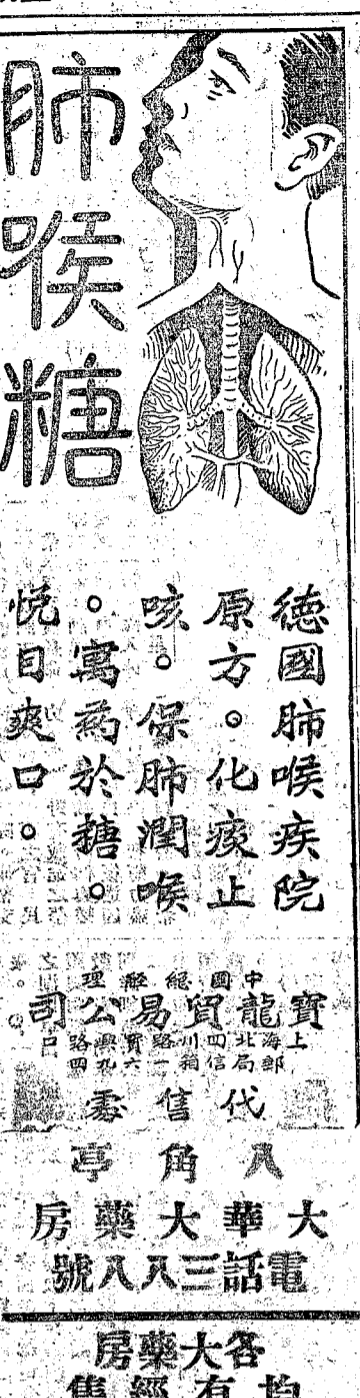 肺喉糖
德國肺喉疾院
原方。化痰止
咳。保肺潤喉
。寓药於糖。
悅目爽口。
中國總經理
寶龍貿易公司
上海北四川路寶興路口
郵局信箱一六九四
代售處
八角亭
大華大藥房
電話三八八號
各大藥房
均有經售